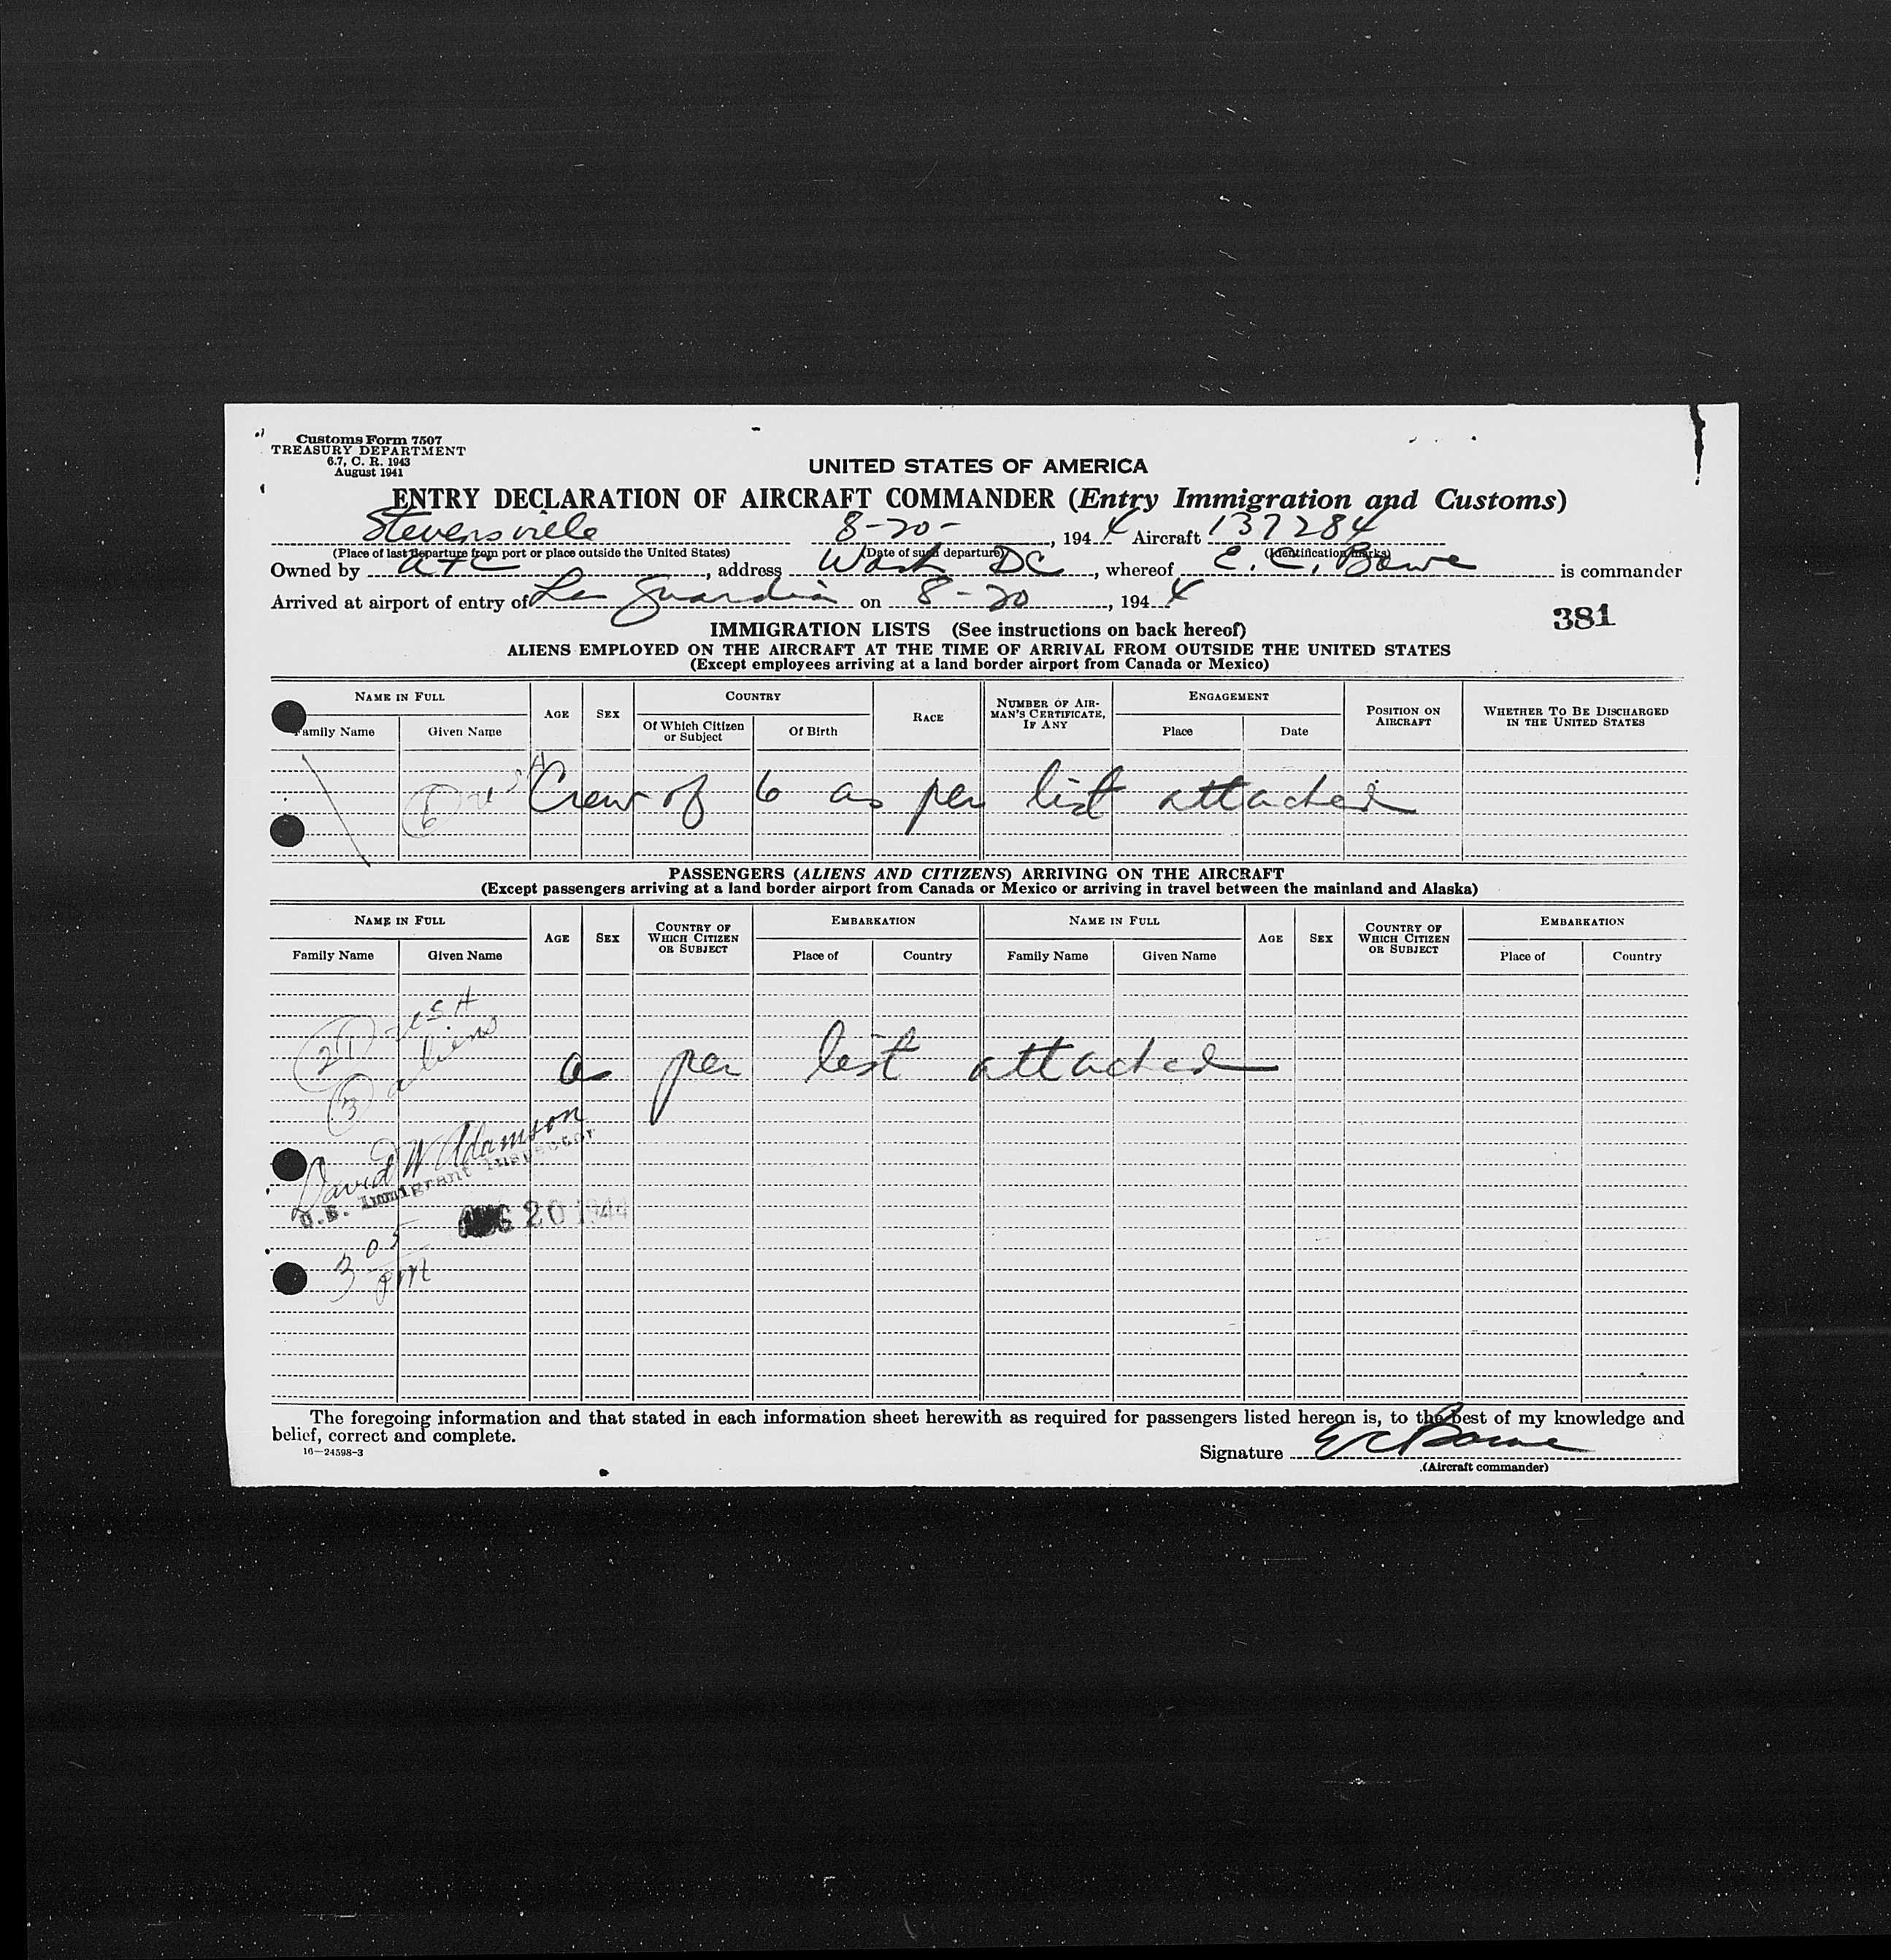 Customs Form 7507
TREASURY DEPARTMENT
6.7, C. R. 1943
August 1941
UNITED STATES OF AMERICA
ENTRY DECLARATION OF AIRCRAFT COMMANDER (Entry Immigration and Customs)
Stevensville 8-20-, 1944 Aircraft 137284
(Place of last departure from port or place outside the United States) (Date of such departure) (Identification marks)
Owned by ATC, address Wash DC, whereof E. C. Bowe is commander
Arrived at airport of entry of La Guardia on 8-20, 1944
381
IMMIGRATION LISTS (See instructions on back hereof)
ALIENS EMPLOYED ON THE AIRCRAFT AT THE TIME OF ARRIVAL FROM OUTSIDE THE UNITED STATES
(Except employees arriving at a land border airport from Canada or Mexico)
NAME IN FULL AGE SEX COUNTRY RACE NUMBER OF AIRMAN'S CERTIFICATE, IF ANY ENGAGEMENT POSITION ON AIRCRAFT WHETHER TO BE DISCHARGED IN THE UNITED STATES
Family Name Given Name Of Which Citizen or Subject Of Birth Place Date
6 USA Crew of 6 as per list attached
PASSENGERS (ALIENS AND CITIZENS) ARRIVING ON THE AIRCRAFT
(Except passengers arriving at a land border airport from Canada or Mexico or arriving in travel between the mainland and Alaska)
NAME IN FULL AGE SEX COUNTRY OF WHICH CITIZEN OR SUBJECT EMBARKATION NAME IN FULL AGE SEX COUNTRY OF WHICH CITIZEN OR SUBJECT EMBARKATION
Family Name Given Name Place of Country Family Name Given Name Place of Country
21 USA
3 aliens
as per list attached
David W Adamson
U.S. Immigrant Inspector
AUG 20 1944
3 05 pm
The foregoing information and that stated in each information sheet herewith as required for passengers listed hereon is, to the best of my knowledge and
belief, correct and complete.
16—24598-3
Signature E C Bowe
(Aircraft commander)